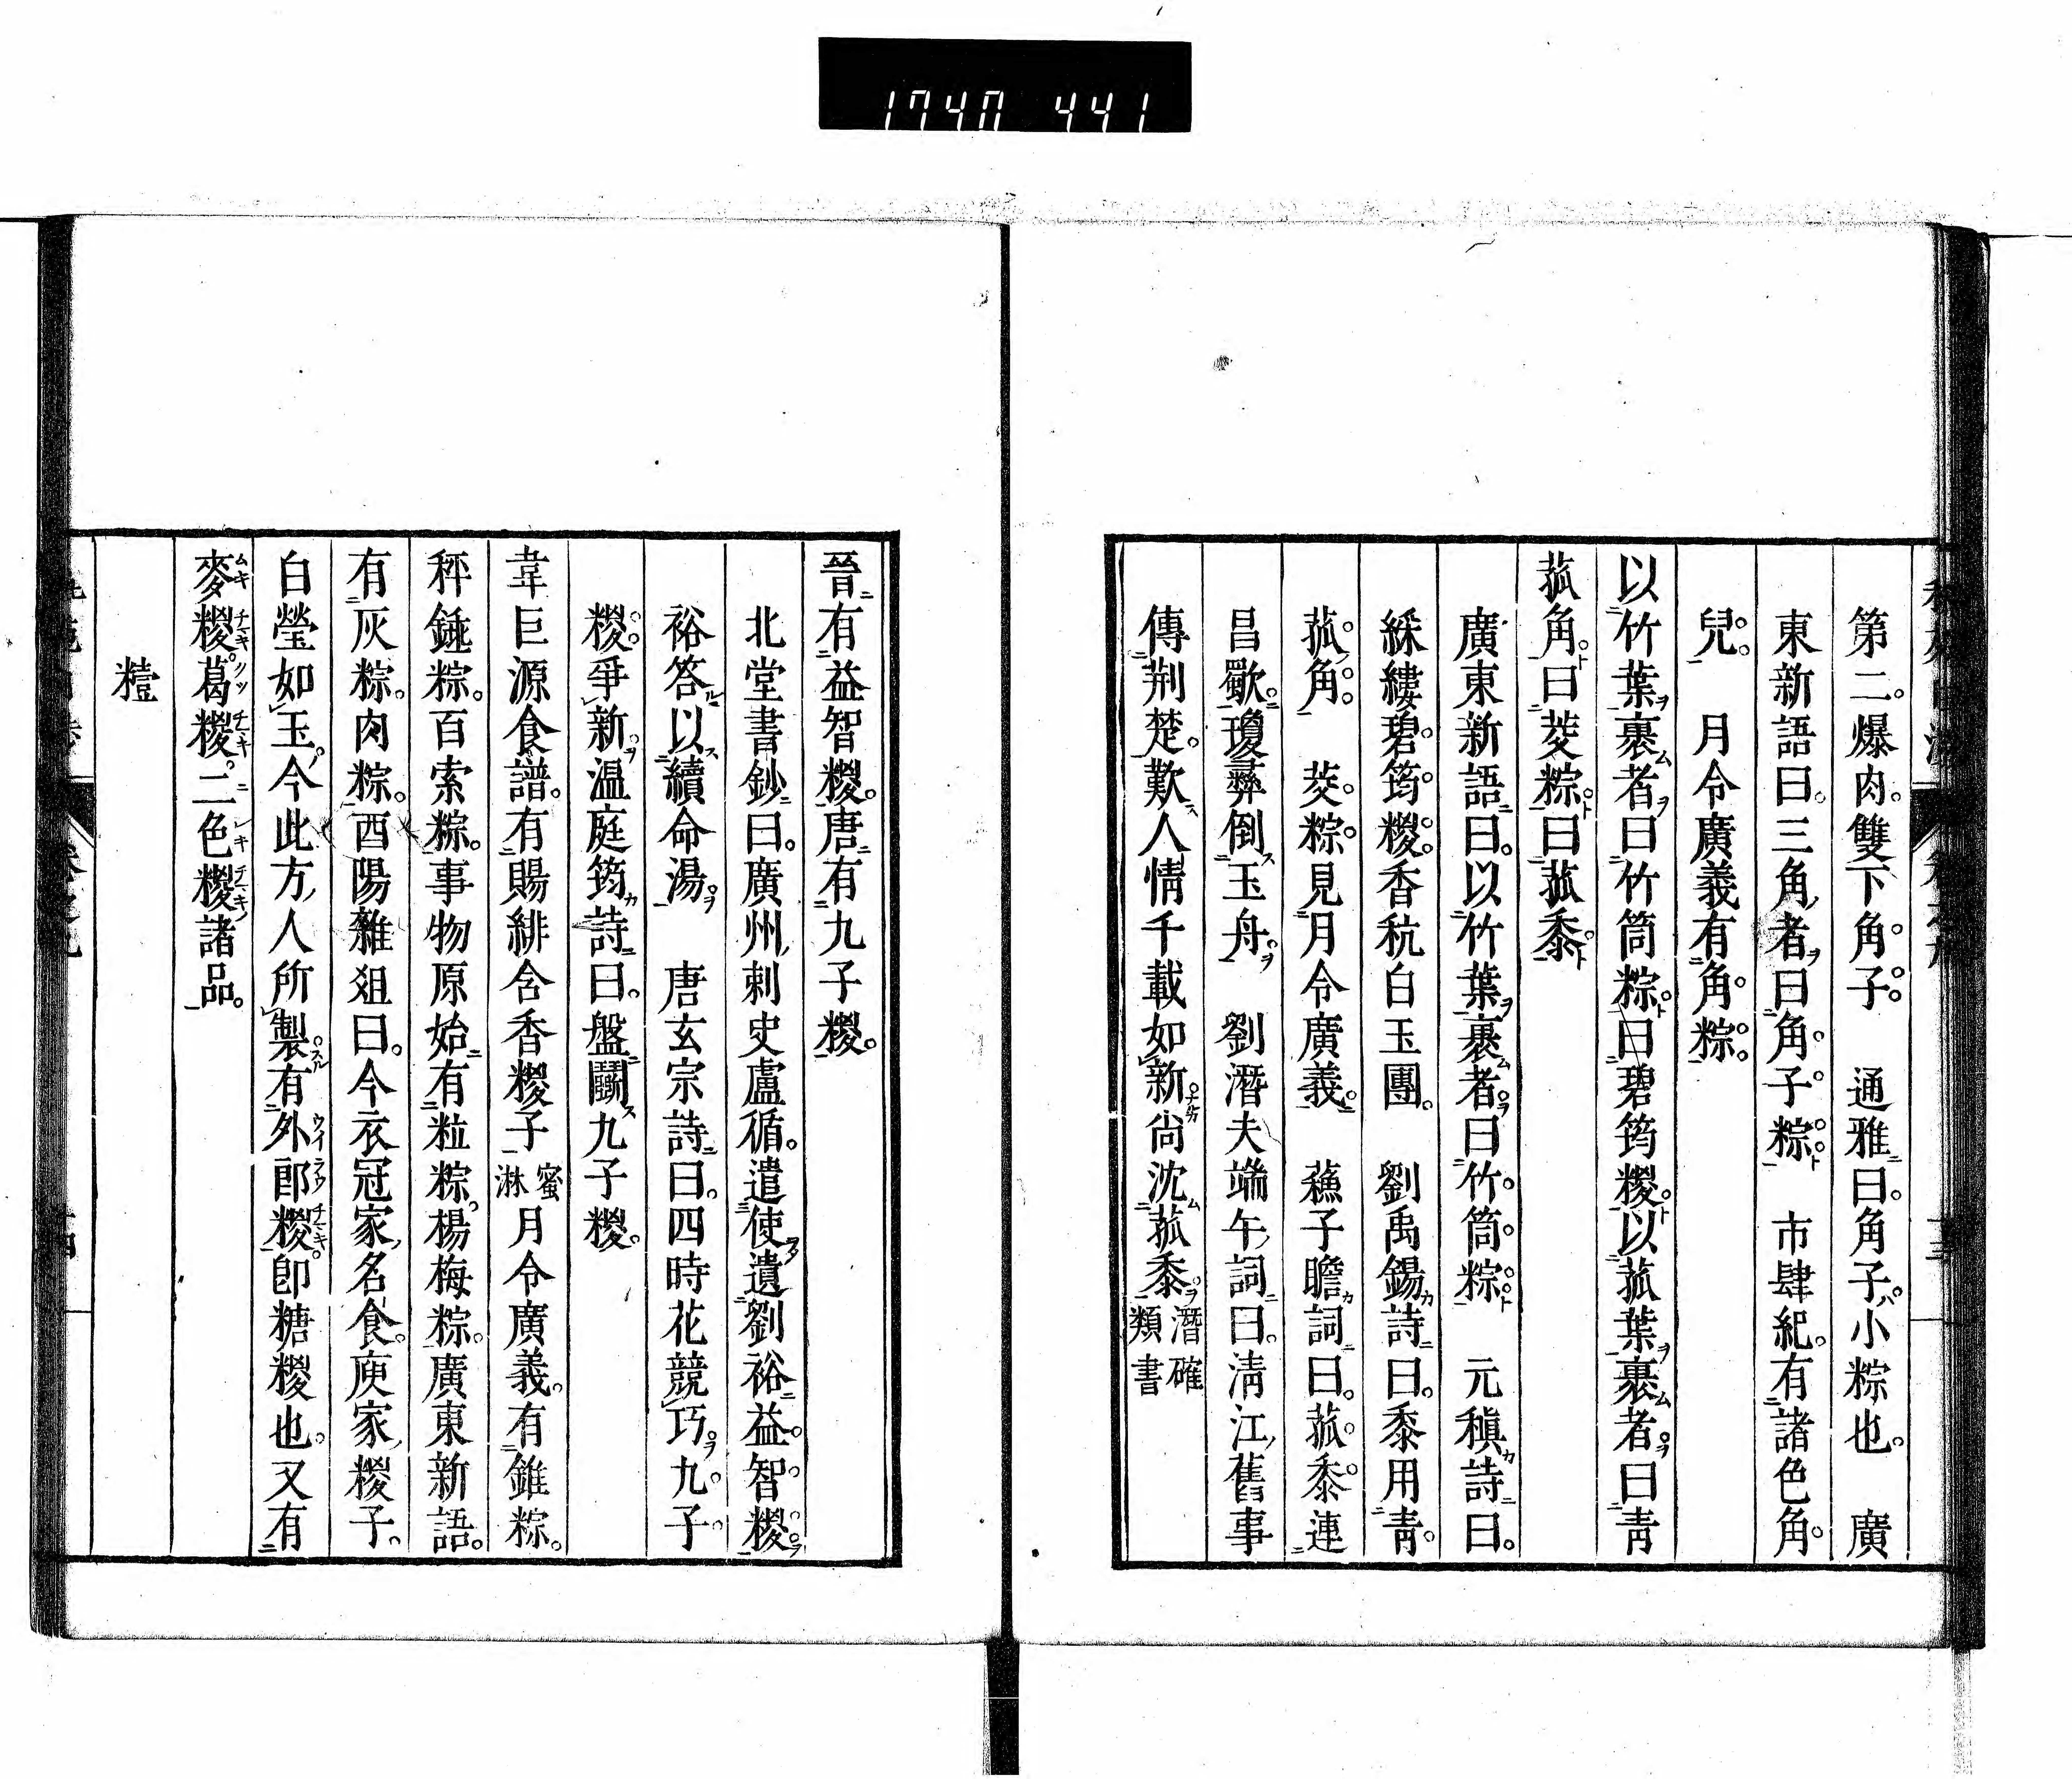 1740 441
第二爆肉雙下角子 通雅曰角子小粽也 廣
東新語曰三角者曰角子粽 市肆紀有諸色角
兒 月令廣義有角粽
以竹葉裹者曰竹筒粽曰碧筠糉以菰葉裹者曰靑
菰角曰茭粽曰菰黍
廣東新語曰以竹葉裹者曰竹筒粽 元稹詩曰
綵縷碧筠糉香秔白玉團 劉禹錫詩曰黍用靑
菰角 茭粽見月令廣義 蘓子瞻詞曰菰黍連
昌歜瓊彛倒玉舟 劉潛夫端午詞曰淸江舊事
傳荆楚歎人情千載如新尙沈菰黍潛確類書
晉有益智糉唐有九子糉
北堂書鈔曰廣州刺史盧循遣使遺劉裕益智糉
裕答以續命湯 唐玄宗詩曰四時花競巧九子
糉爭新温庭筠詩曰盤鬭九子糉
韋巨源食譜有賜緋含香糉子蜜淋月令廣義有錐粽
秤錘粽百索粽事物原始有粒粽楊梅粽廣東新語
有灰粽肉粽酉陽雜俎曰今衣冠家名食庾家糉子
白瑩如玉今此方人所製有外郎糉卽糖糉也又有
麥糉葛糉二色糉諸品
糦